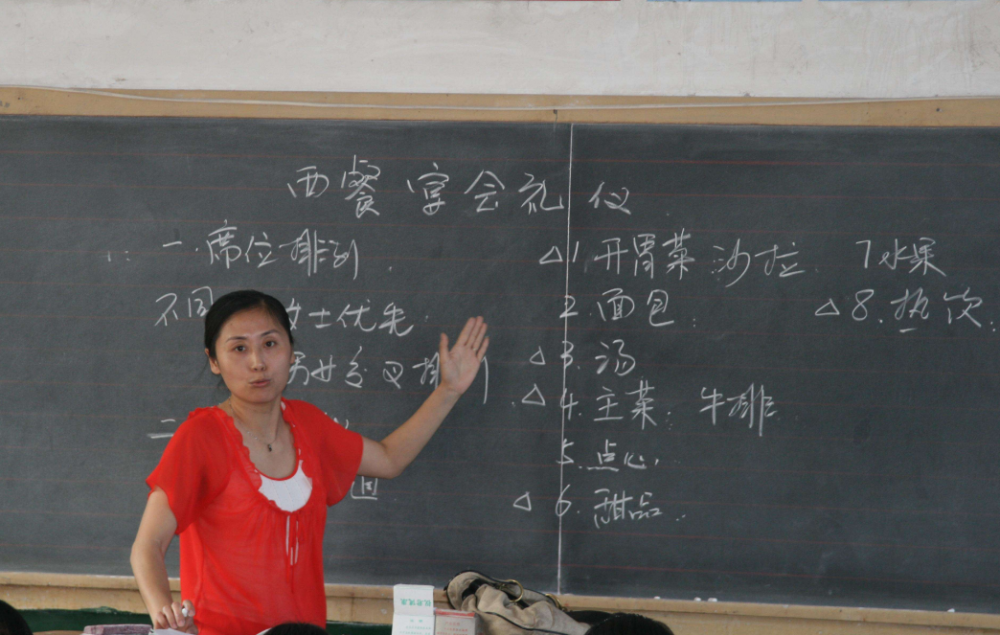 西餐宴会礼仪
一.席位排列.
不同 女士优先.
男女交叉排列
二
△1.开胃菜 沙拉. 7水果
2.面包. △8.热饮.
△3.汤
△4.主菜:牛排.
5.点心.
△6.甜品..